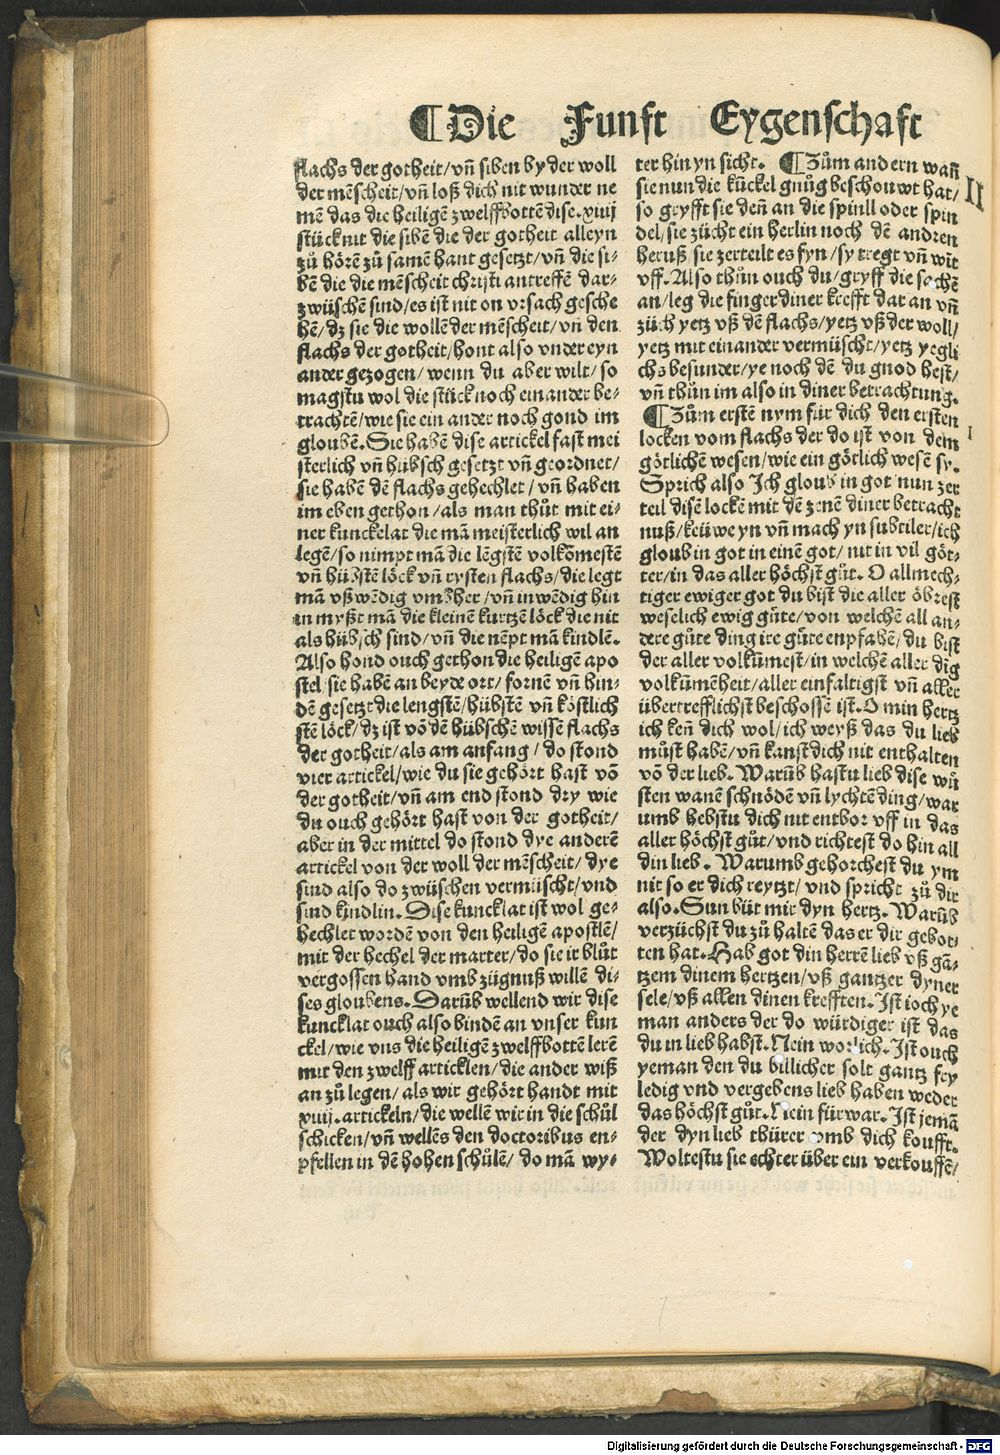 ¶Die Funft Eygenschaft
flachs der gotheit/vñ siben by der woll
der mēscheit/vñ loß dich nit wunder ne
mē das die heiligē zwelffbottē dise.xiiij
stück nit die sibē die der gotheit alleyn
zů hörē zů samē hant gesetzt/vñ die si-
bē die die mēscheit christi antreffē dar-
zwüschē sind/es ist nit on vrsach gesche
hē/dz sie die wollē der mēscheit/vñ den
flachs der gotheit/hont also vnder eyn
ander gezogen/wenn du aber wilt/so
magstu wol die stück noch einander be-
trachtē/wie sie ein ander noch gond im
gloubē. Sie habē dise artickel fast mei
sterlich vñ hübsch gesetzt vñ geordnet/
sie habē dē flachs gehechlet/vñ haben
im eben gethon/als man thůt mit ei-
ner kunckelat die mā meisterlich wil an
legē/so nimpt mā die lēgstē volkōmestē
vñ hübstē löck vñ rysten flachs/die legt
mā vßwēdig vmbher/vñ inwēdig hin
in myßt mā die kleinē kurtzē löck die nit
als hübsch sind/vñ die nēpt mā kindlē.
Also hond ouch gethon die heiligē apo
stel/sie habē an beyde ort/fornē vñ hin-
dē gesetzt die lengstē/hübstē vñ köstlich
stē löck/dz ist vō dē hübschē wissē flachs
der gotheit/als am anfang/do stond
vier artickel/wie du sie gehört hast vō
der gotheit/vñ am end stond dry wie
du ouch gehört hast von der gotheit/
aber in der mittel do stond dye anderē
artickel von der woll der mēscheit/dye
sind also do zwüschen vermüscht/vnd
sind kindlin. Dise kuncklat ist wol ge-
hechlet wordē von den heiligē apostlē/
mit der hechel der marter/do sie ir blůt
vergossen hand vmb zügnuß willē di-
ses gloubens. Darūb wellend wir dise
kuncklat ouch also bindē an vnser kun
ckel/wie vns die heiligē zwelffbottē lerē
mit den zwelff articklen/die ander wiß
an zů legen/als wir gehört handt mit
xiiij.artickeln/die wellē wir in die schůl
schicken/vñ wellēs den doctoribus en-
pfellen in dē hohen schůlē/do mā wy-
ter hin yn sicht. ¶Zům andern wañ
sie nun die kůckel gnůg beschouwt hat/
II
so gryfft sie deñ an die spinll oder spin
del/sie zücht ein herlin noch dē andren
heruß/sie zerteilt es fyn/sy tregt vñ wit
vff. Also thůn ouch du/gryff die sachē
an/leg die finger diner krefft dar an vñ
züch yetz vß dē flachs/yetz vß der woll/
yetz mit einander vermüscht/yetz yegli
chs besunder/ye noch dē du gnod hest/
vñ thůn im also in diner betrachtung.
¶Zům erstē nym für dich den ersten
I
locken vom flachs der do ist von dem
götlichē wesen/wie ein götlich wesē sy.
Sprich also Ich gloub in got nun zer
teil disē lockē mit dē zenē diner betracht
nuß/keüwe yn vñ mach yn subtiler/ich
gloub in got in einē got/nit in vil göt-
ter/in das aller höchst gůt. O allmech-
tiger ewiger got du bist die aller öbrest
weselich ewig gůte/von welchē all an-
dere gůte ding ire gůte enpfahē/du bist
der aller volkūmest/in welchē aller dīg
volkūmēheit/aller einfaltigst vñ aller
übertrefflichst beschossē ist. O min hertz
ich keñ dich wol/ich weyß das du lieb
můst habē/vñ kanst dich nit enthalten
vō der lieb. Warūb hastu lieb dise wů
sten wanē schnödē vñ lychtē ding/war
umb hebstu dich nit entbor vff in das
aller höchst gůt/vnd richtest do hin all
din lieb. Warumb gehorchest du ym
nit so er dich reytzt/vnd spricht zů dir
also. Sun büt mir dyn hertz. Warūb
verzüchst du zů haltē das er dir gebot-
ten hat. Hab got din herrē lieb vß gā-
tzem dinem hertzen/vß gantzer dyner
sele/vß allen dinen krefften. Ist ioch ye
man anders der do würdiger ist das
du in lieb habst. Nein worlich. Ist ouch
yeman den du billicher solt gantz fry
ledig vnd vergebens lieb haben weder
das höchst gůt. Nein fürwar. Ist jemā
der dyn lieb thürer vmb dich koufft.
Woltestu sie echter über ein verkouffē/
Digitalisierung gefördert durch die Deutsche Forschungsgemeinschaft - DFG